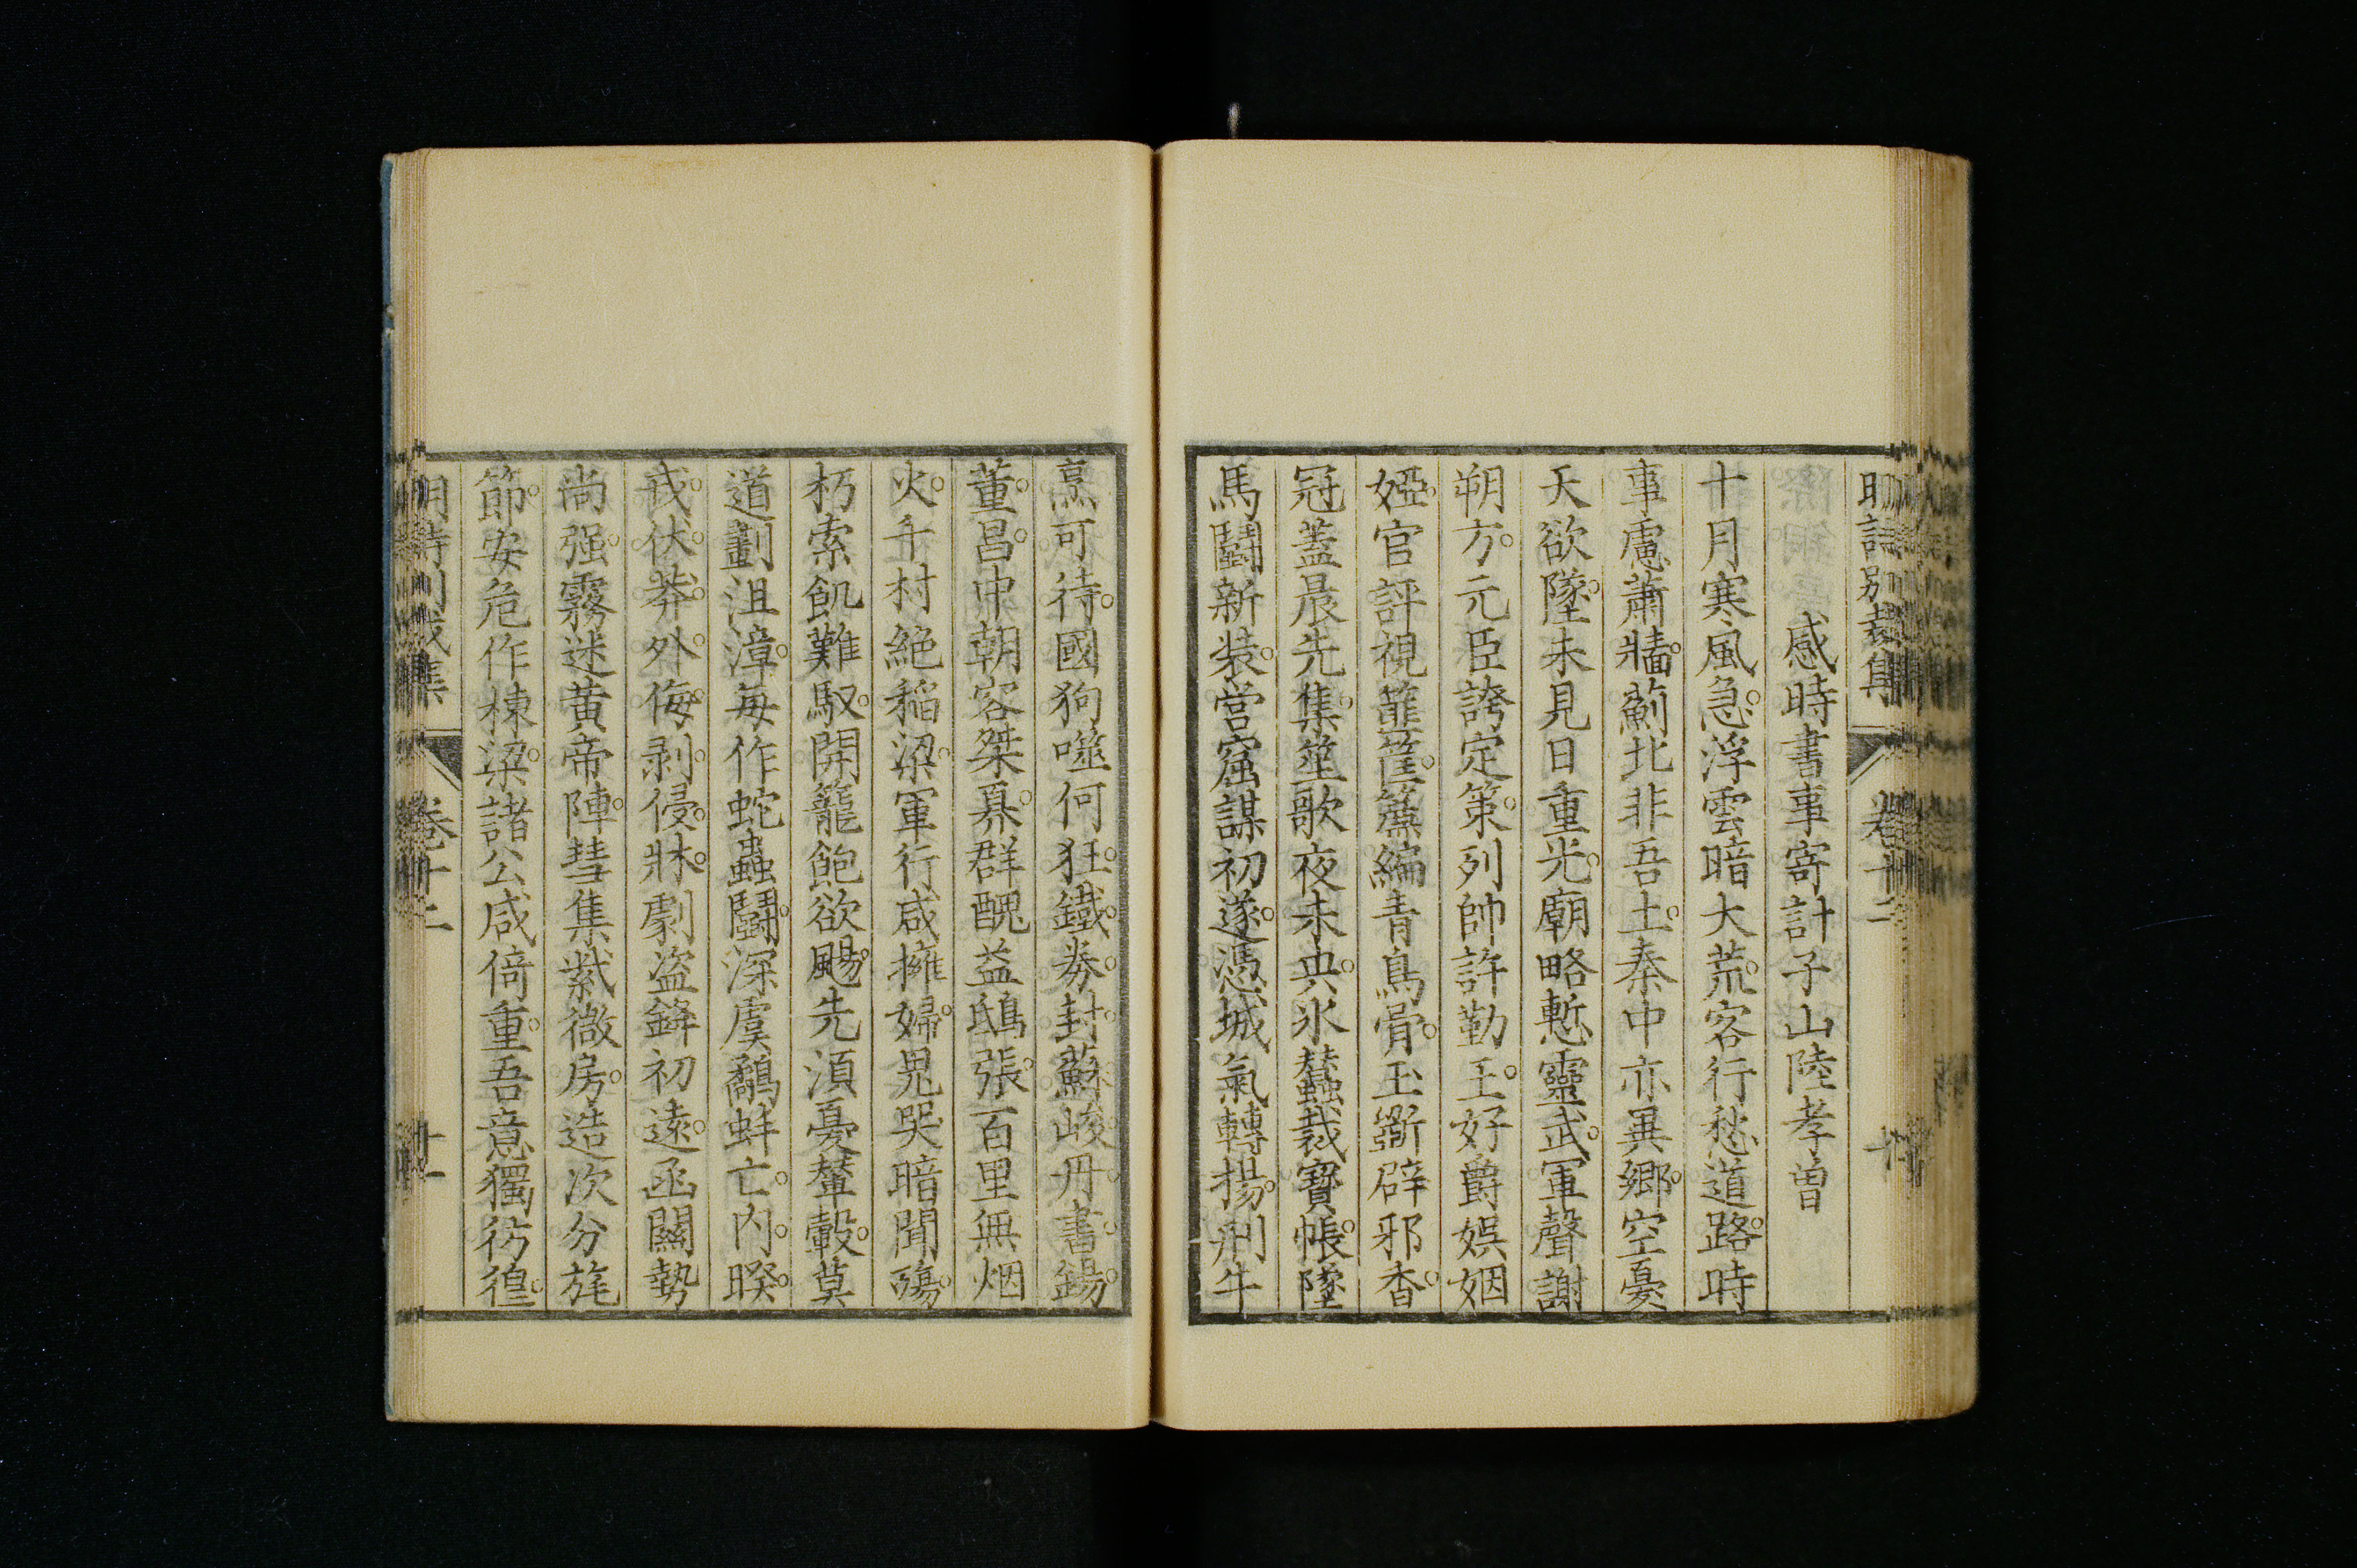 明詩別裁集 卷十二 十
感時書事寄計子山陸孝曾
十月寒風急浮雲暗大荒客行愁道路時
事慮蕭牆薊北非吾土秦中亦異鄉空憂
天欲墜未見日重光廟略慙靈武軍聲謝
朔方元臣誇定策列帥許勤王好爵娛姻
婭官評視篚筐簾編青鳥骨玉斵辟邪香
冠蓋晨先集筵歌夜未央氷蠶裁寶帳隊
馬鬪新裝營窟謀初遂憑城氣轉揚刑牛
烹可待國狗噬何狂鐵券封蘇峻丹書錫
董昌中朝容桀奡群醜益鴟張百里無烟
火千村絕稻梁軍行咸擁婦鬼哭暗聞殤
朽索飢難馭開籠飽欲颺先須憂輦轂莫
道劃沮漳每作蛇蟲鬪深虞鷸蚌亡內睽
戎伏莽外侮剥侵牀劇盜鋒初遠函關勢
尚强霧迷黄帝陣彗集紫微房造次分旄
節安危作棟梁諸公咸倚重吾意獨彷徨
明詩別裁集 卷十二 十一